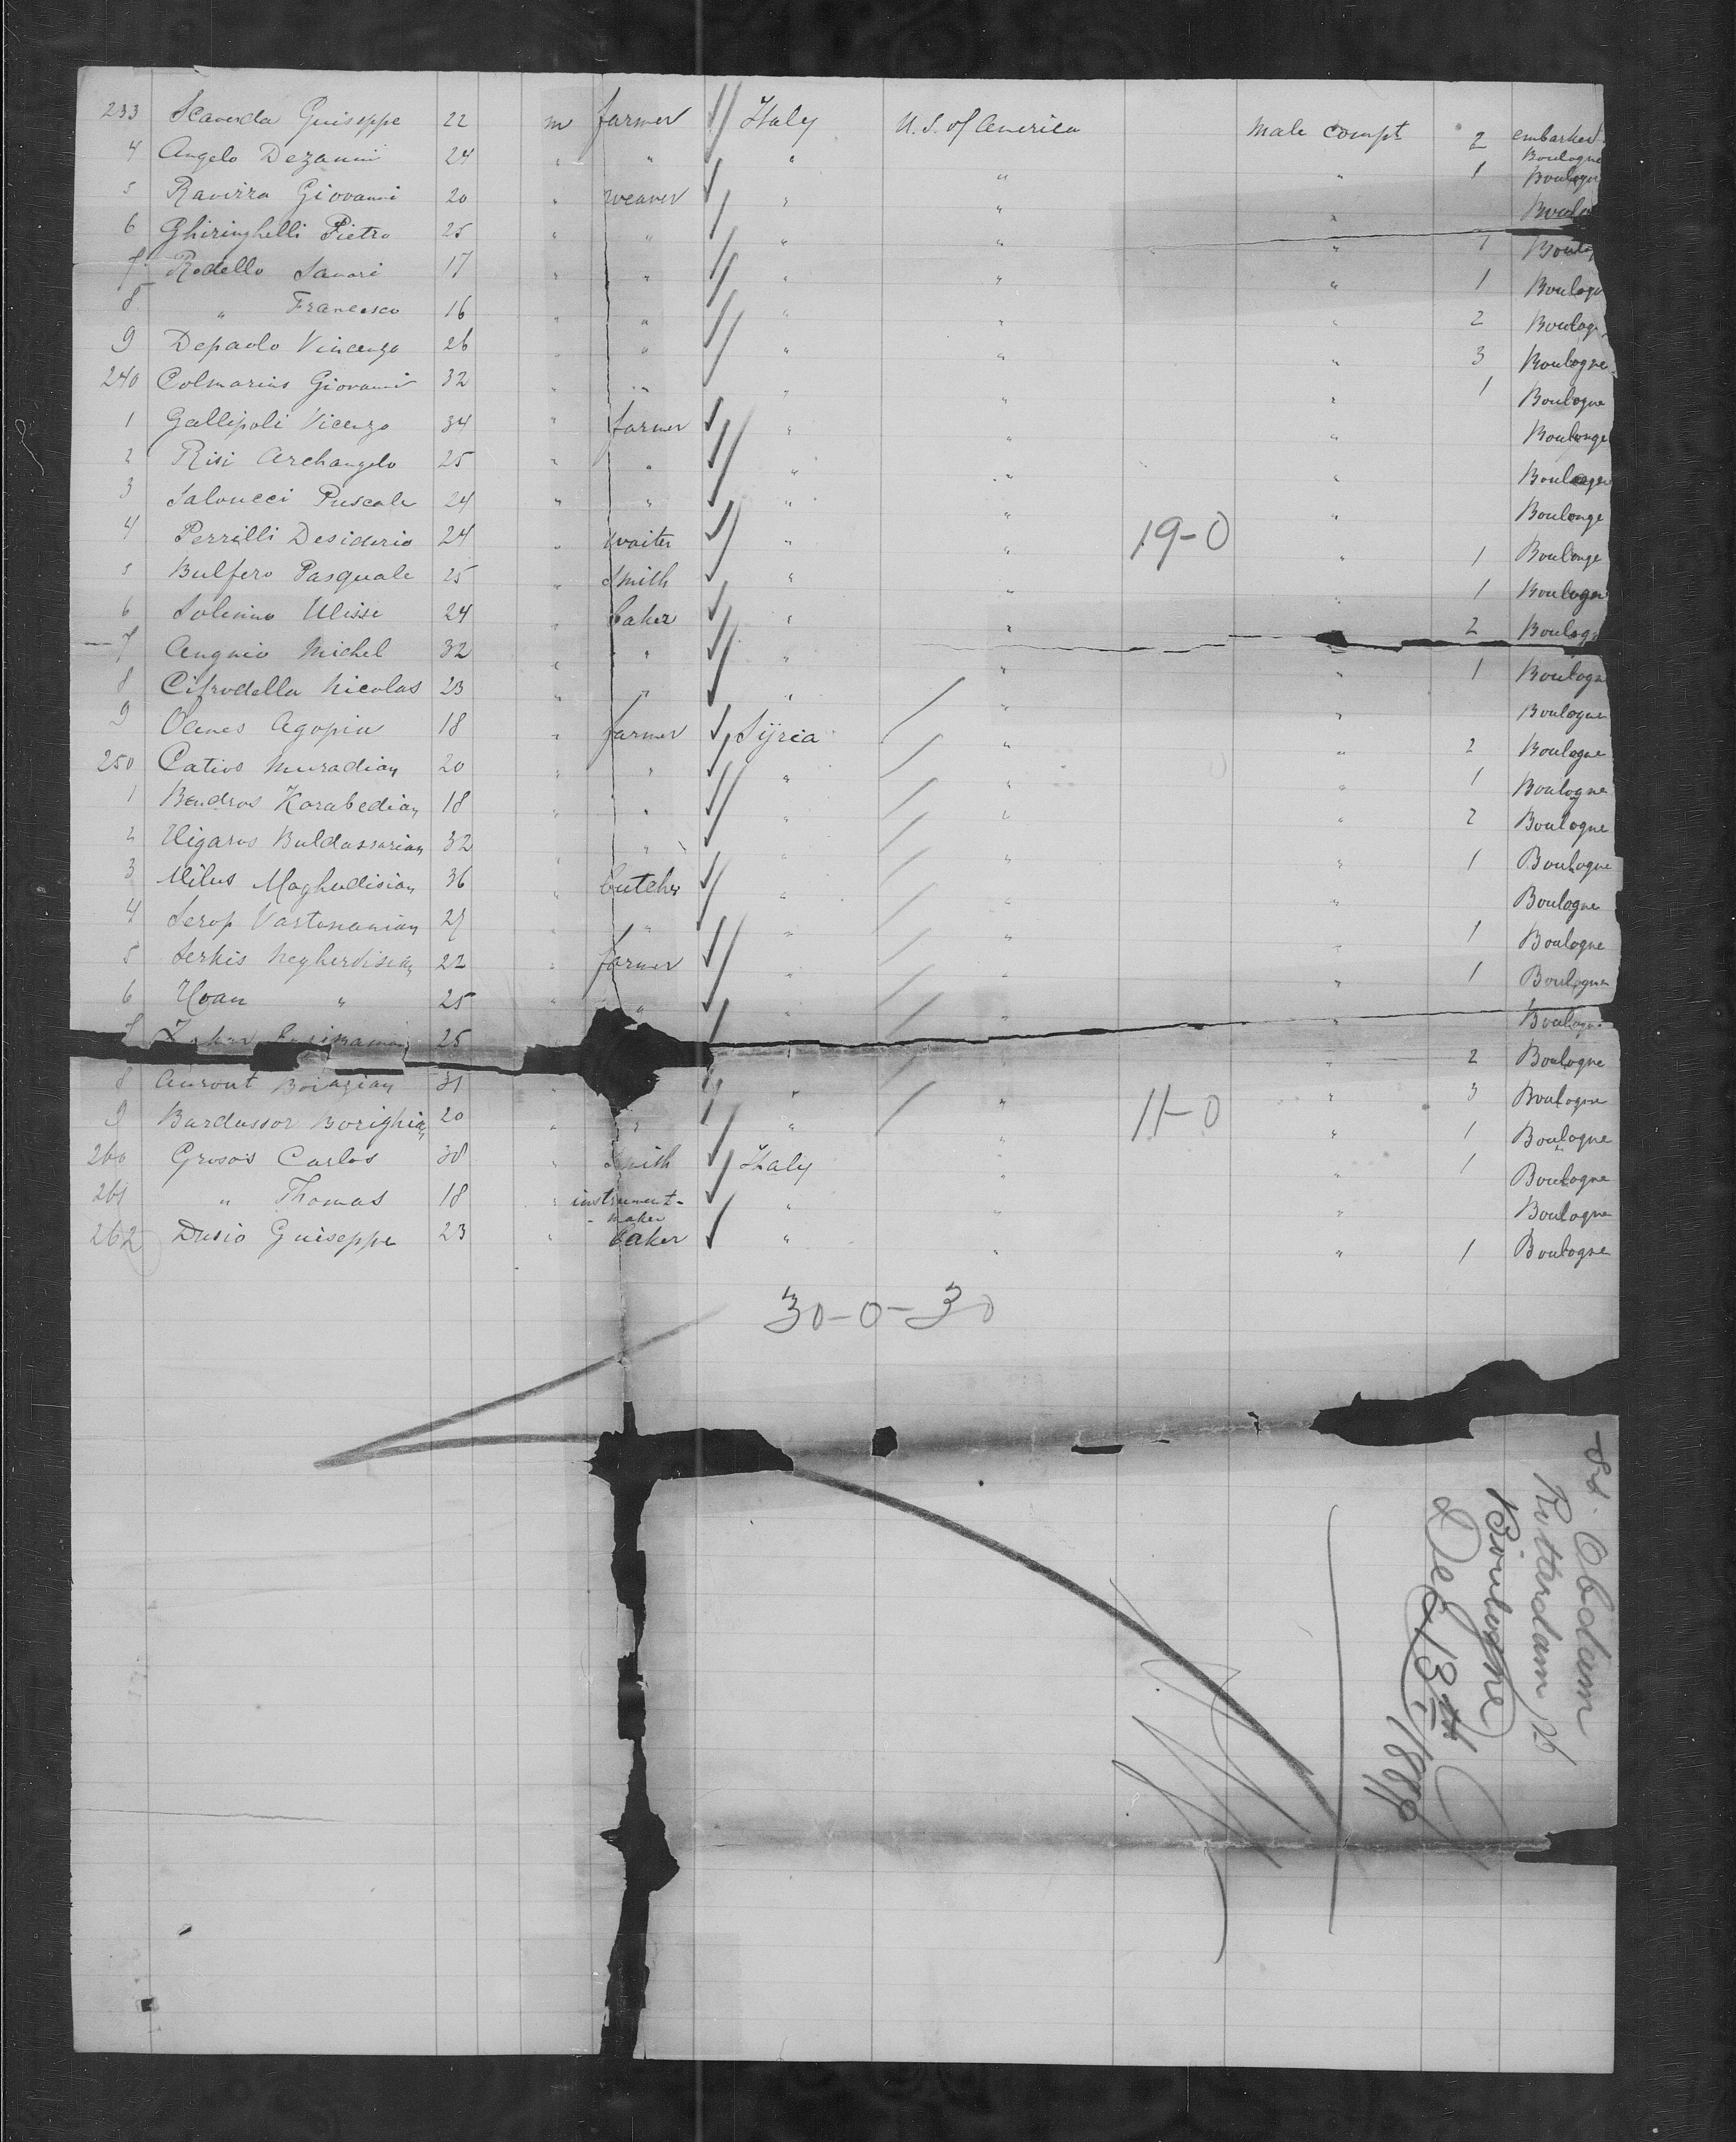 233 Scaverda Guiseppe 22 m farmer Italy U.S. of America Male compt 2 embarked Boulogne
4 Angelo Dezanni 24 " " " " " 1 Boulogne
5 Ravizza Giovanni 20 " weaver " " " Boulo
6 Ghiringhelli Pietro 25 " " " " " 1 Boulog
7 Rodello Savari 17 " " " " " 1 Boulogn
8 " Francesco 16 " " " " " 2 Boulogn
9 Depaolo Vincenzo 26 " " " " " 3 Boulogne
240 Colmarius Giovanni 32 " " " " " 1 Boulogne
1 Gallipoli Vicenzo 34 " farmer " " " Boulonge
2 Risi Archangelo 25 " " " " " Boulonge
3 Salvucci Puscale 24 " " " " " Boulonge
4 Perrilli Desiderio 24 " waiter " " 19-0 " 1 Boulonge
5 Bulfero Pasquale 25 " Smith " " " 1 Boulogne
6 Solenino Ulisse 24 " baker " " " 2 Boulogn
7 Augnio Michel 32 " " " " " 1 Boulogn
8 Cifrodella Nicolas 23 " " " " " Boulogne
9 Oanes Agopin 18 " farmer Syria " " 2 Boulogne
250 Catios Muradian 20 " " " " " 1 Boulogne
1 Bendros Karabedian 18 " " " " " 2 Boulogne
2 Uigaros Buldassarian 32 " " " " " 1 Boulogne
3 Milus Maghudisian 36 " butcher " " " Boulogne
4 Serop Vartonanian 25 " " " " " 1 Boulogne
5 Serkis Negherdisian 22 " farmer " " " 1 Boulogne
6 Hoan " 25 " " " " " Boulogne
7 25 " " " 2 Boulogne
8 Auront Boiazian 31 " " " " 3 Boulogne
9 Bardassor Borighian 20 " " " " 11-0 " 1 Boulogne
260 Grosos Carlos 38 " Smith Italy " " 1 Boulogne
261 " Thomas 18 " instrument-maker " " " Boulogne
262 Dusio Guiseppe 23 " baker " " " 1 Boulogne
30-0-30
Ss. Obdam
Rotterdam &
Boulogne
Dec 13th 1886